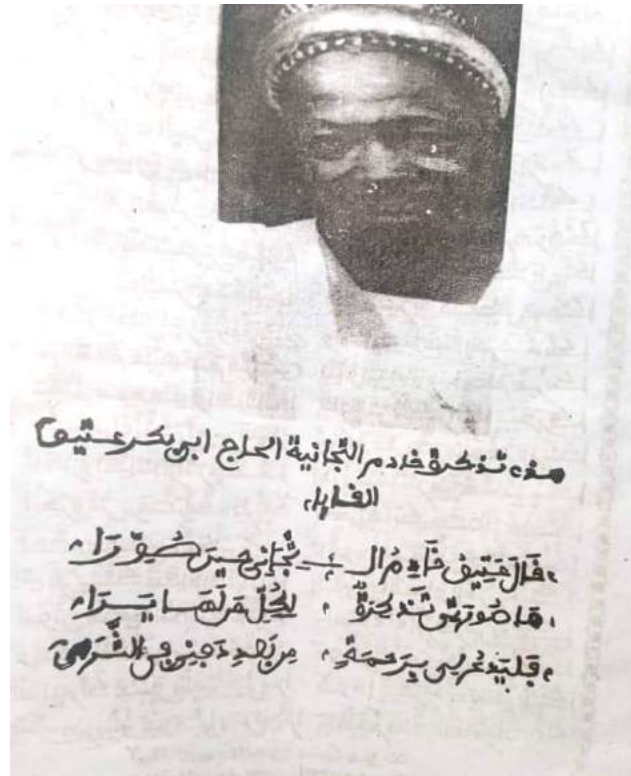 هذه تذكرة خادم التجانية الحاج ابى بكر عتيق
القائل
قال عتيق خادم ال تجانى حين صورا
ها صورتى تذكرة لكل من لها يرا
فليدع لى برحمة من بعد دفنى فى الثرى